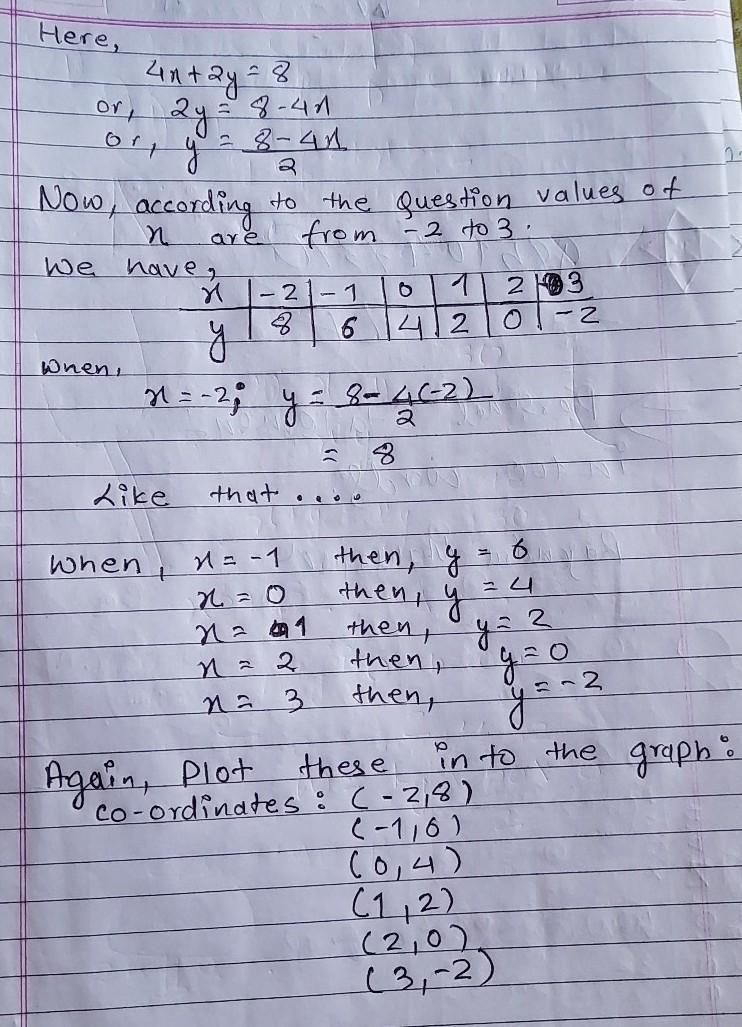 Here,
4x + 2y = 8
or, 2y = 8 - 4x
or, y = 8 - 4x
2
Now, according to the Question values of
x are from -2 to 3.
We have,
x | -2 | -1 | 0 | 1 | 2 | 3
y | 8 | 6 | 4 | 2 | 0 | -2
when,
x = -2; y = 8 - 4(-2)
2
= 8
Like that ....
when, x = -1 then, y = 6
x = 0 then, y = 4
x = 1 then, y = 2
x = 2 then, y = 0
x = 3 then, y = -2
Again, Plot these into the graph:
co-ordinates: (-2,8)
(-1,6)
(0,4)
(1,2)
(2,0)
(3,-2)